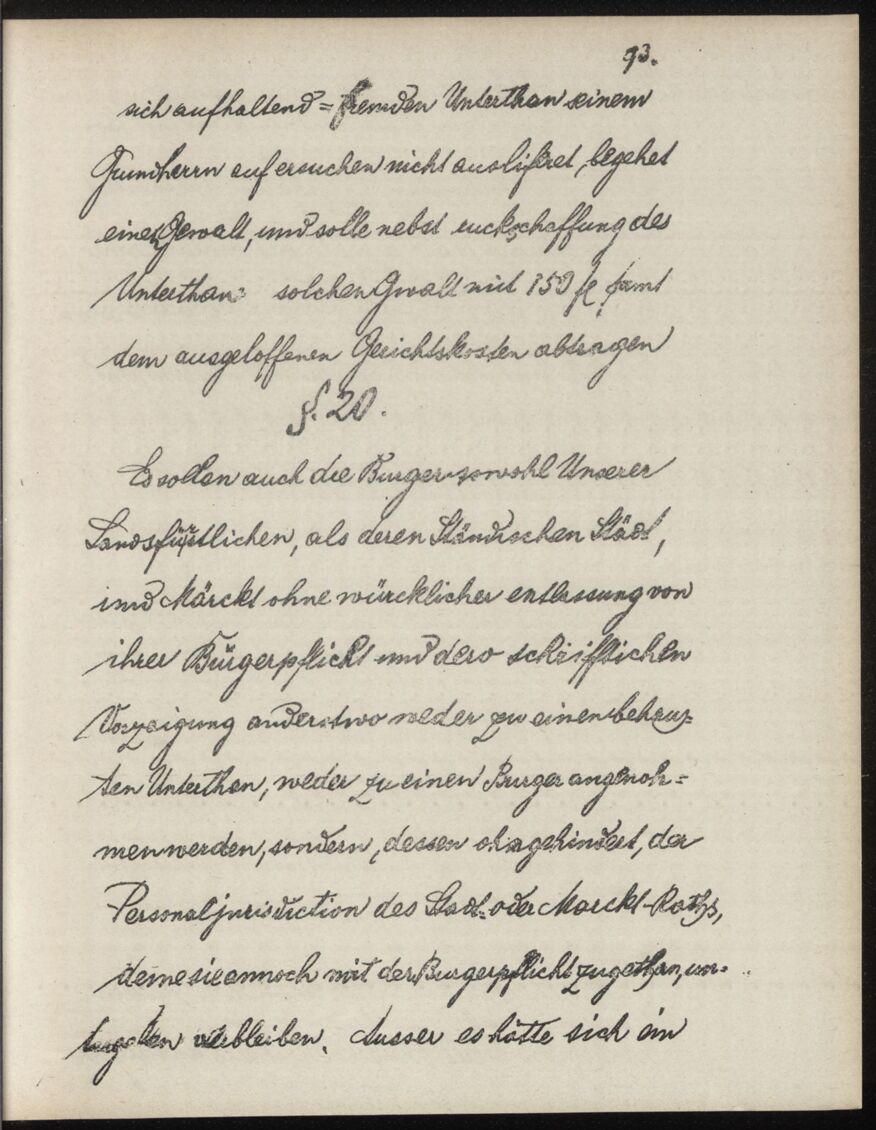 93.
sich aufhaltend = fremden Unterthan seinem
Grundherrn auf ersuchen nicht auslifret, begehet
einen Gewalt, und solle nebst ruckschaffung des
Unterthans solchen Gwalt mit 150 fl samt
dem ausgeloffenen Gerichtskosten abtragen
§. 20.
Es sollen auch die Burger sowohl Unserer
Landsfürstlichen, als deren Ständischen Städt,
und Märckt ohne würcklicher entlassung von
ihrer Bürgerpflicht und dero schrifftlichen
Vorzaigung anderstwo weder zu einen behauß-
ten Unterthan, weder zu einen Burger angenoh=
men werden, sondern, dessen ohngehindert, der
Personaljurisdiction des Stadt- oder Marckt-Raths,
deme sie annoch mit der Burgerpflicht zugethan, un-
verbleiben. Ausser es hätte sich ein